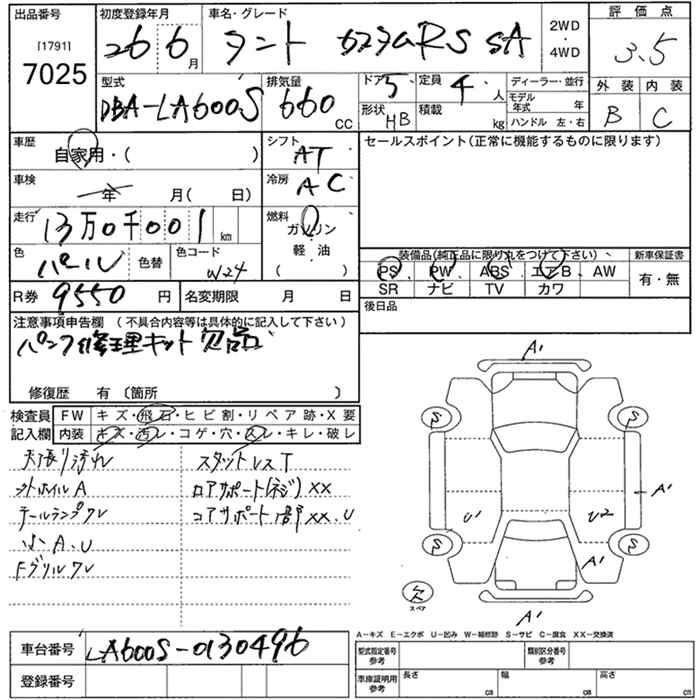 出品番号 初度登録年月 車名・グレード 評価点
[1791] 26 6月 タント カスタムRS SA 2WD・4WD 3.5
7025
型式 排気量 ドア 5 定員 4人 ディーラー・並行 外装 内装
DBA-LA600S 660cc 形状 HB 積載 kg モデル年式 年 B C
ハンドル 左・右
車歴 シフト セールスポイント(正常に機能するものに限ります)
自家用・( ) AT
車検 冷房
年 月( 日) AC
走行 燃料
13万0千001km ガソリン
軽・油
( )
色 色替 色コード 装備品(純正品に限り丸をつけて下さい) 新車保証書
パール W24 PS PW ABS エアB AW 有・無
SR ナビ TV カワ
R券 9550円 名変期限 月 日 後日品
注意事項申告欄 (不具合内容等は具体的に記入して下さい)
パンク修理キット欠品
修復歴 有 〔箇所 〕
検査員 FW キズ・飛石・ヒビ割・リペア跡・X要
記入欄 内装 キズ・汚レ・コゲ・穴・スレ・キレ・破レ
天張り汚れ スタットレスT
外ホイルA ロアサポート(ネジ)XX
テールランプワレ コアサポート部XX、U
小A、U
Fグリルワレ
A'
S S
A'
U' U2
S S
A'
欠
スペア
A'
A-キズ E-エクボ U-凹み W-補修跡 S-サビ C-腐食 XX-交換済
車台番号 LA600S-0130496 型式指定番号 参考 類別区分番号 参考
登録番号 車庫証明用 参考 長さ cm 幅 cm 高さ cm